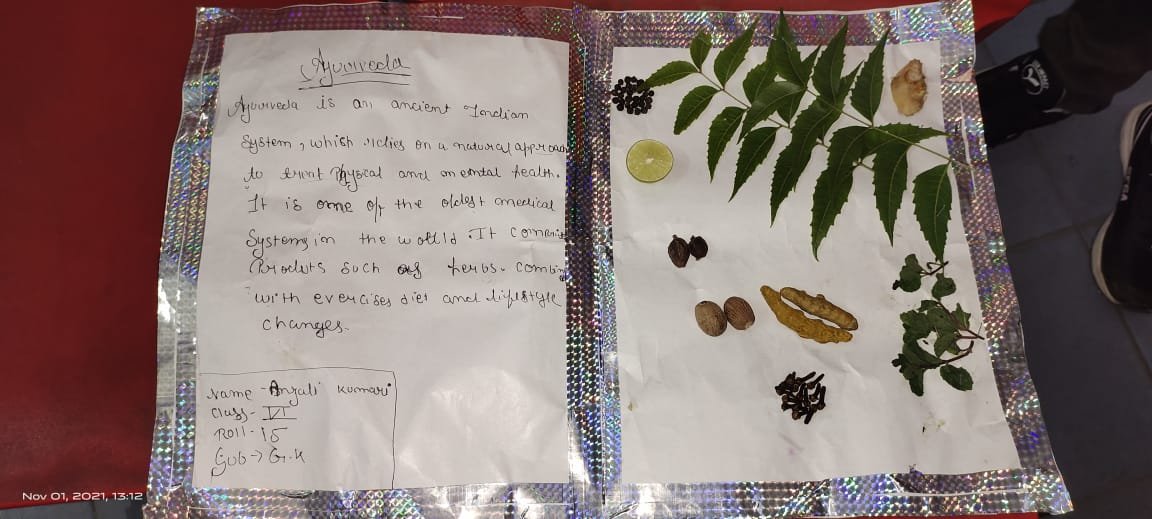 Ayurveda
Ayurveda is an ancient Indian
System, which relies on a natural approac
to treat Physcal and mental health.
It is one of the oldest medical
Systems in the world. It
Produts such as herbs. combin
with exercises diet and lifestyle
changes.
Name - Anjali kumari
Class- VI
Roll- 15
Sub → G.K
Nov 01, 2021, 13:12